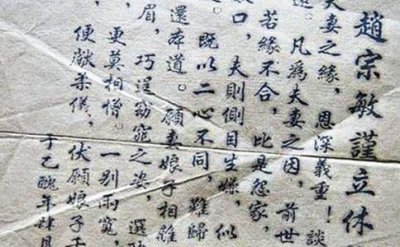 趙宗敏謹立休
夫妻之緣，恩深義重！談
遠。凡為夫妻之因，前世
若緣不合，比是怨家，
口，夫則側目生嫌，似
。既以二心不同 難歸
還本道。願妻娘子相離
眉，巧逞窈窕之姿，選
更莫相憎。一別兩寬，
便獻柔儀，伏願娘子千
于乙醜年